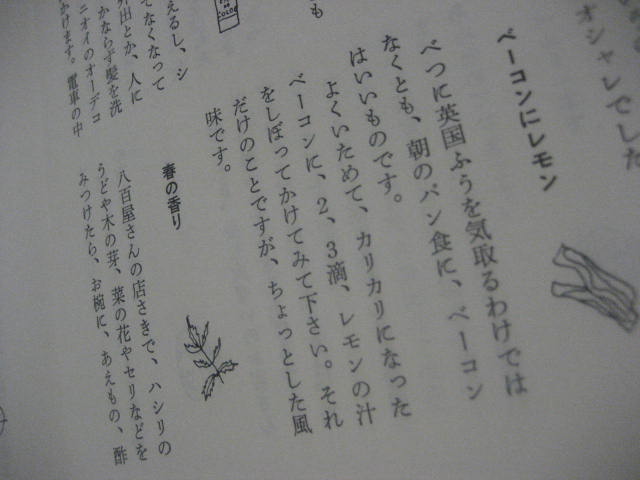 オシャレでした
ベーコンにレモン
べつに英国ふうを気取るわけでは
なくとも、朝のパン食に、ベーコン
はいいものです。
よくいためて、カリカリになった
ベーコンに、2、3滴、レモンの汁
をしぼってかけてみて下さい。それ
だけのことですが、ちょっとした風
味です。
も
えるし、シ
てなくなって
外出とか、人に
かならず髪を洗
ニオイのオーデコ
かけます。電車の中
春の香り
八百屋さんの店さきで、ハシリの
うどや木の芽、菜の花やセリなどを
みつけたら、お椀に、あえもの、酢